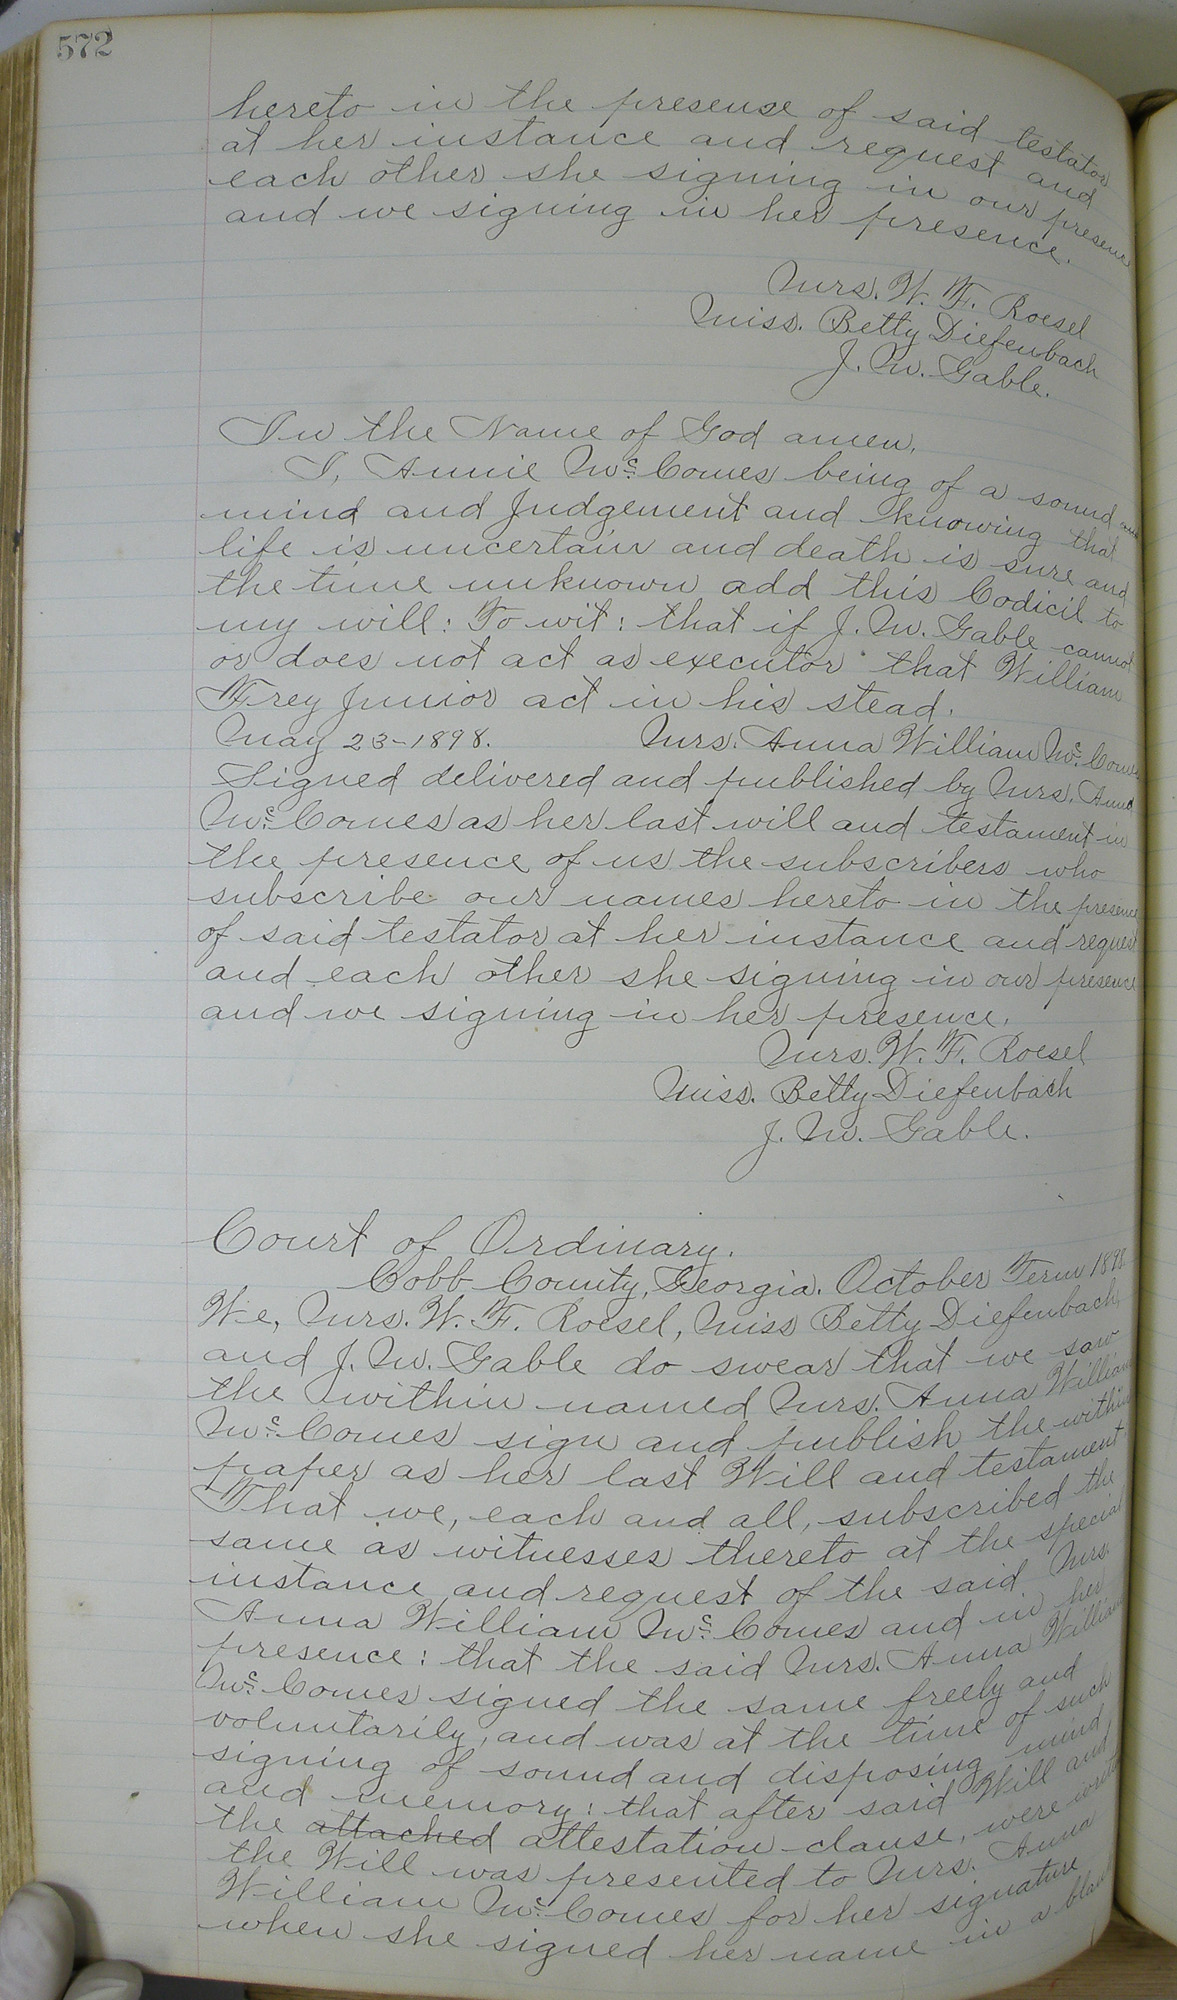 572
hereto in the presense of said testator
at her instance and request and
each other she signing in our presence
and we signing in her presence.
Mrs. W. F. Roesel
Miss. Betty Diefenbach
J. M. Gable.
In the Name of God amen.
I, Annie Mc Comes being of a sound and
mind and Judgement and knowing that
life is uncertain and death is sure and
the time unknown add this Codicil to
my will: To wit: that if J. M. Gable cannot
or does not act as executor that William
Frey Junior act in his stead.
May 23-1898. Mrs. Anna William Mc Comes
Signed delivered and published by Mrs. Anna
Mc Comes as her last will and testament in
the presence of us the subscribers who
subscribe our names hereto in the presence
of said testator at her instance and request
and each other she signing in our presence
and we signing in her presence.
Mrs. W. F. Roesel
Miss. Betty Diefenbach
J. M. Gable.
Court of Ordinary.
Cobb County, Georgia. October Term 1898
We, Mrs. W. F. Roesel, Miss Betty Diefenbach,
and J. M. Gable do swear that we saw
the within named Mrs. Anna William
Mc Comes sign and publish the within
paper as her last Will and testament
That we, each and all, subscribed the
same as witnesses thereto at the special
instance and request of the said Mrs.
Anna William Mc Comes and in her
presence: that the said Mrs. Anna William
Mc Comes signed the same freely and
voluntarily, and was at the time of such
signing of sound and disposing mind
and memory: that after said Will and
the attached attestation clause, were wrote
the Will was presented to Mrs. Anna
William Mc Comes for her signature
when she signed her name in a blank